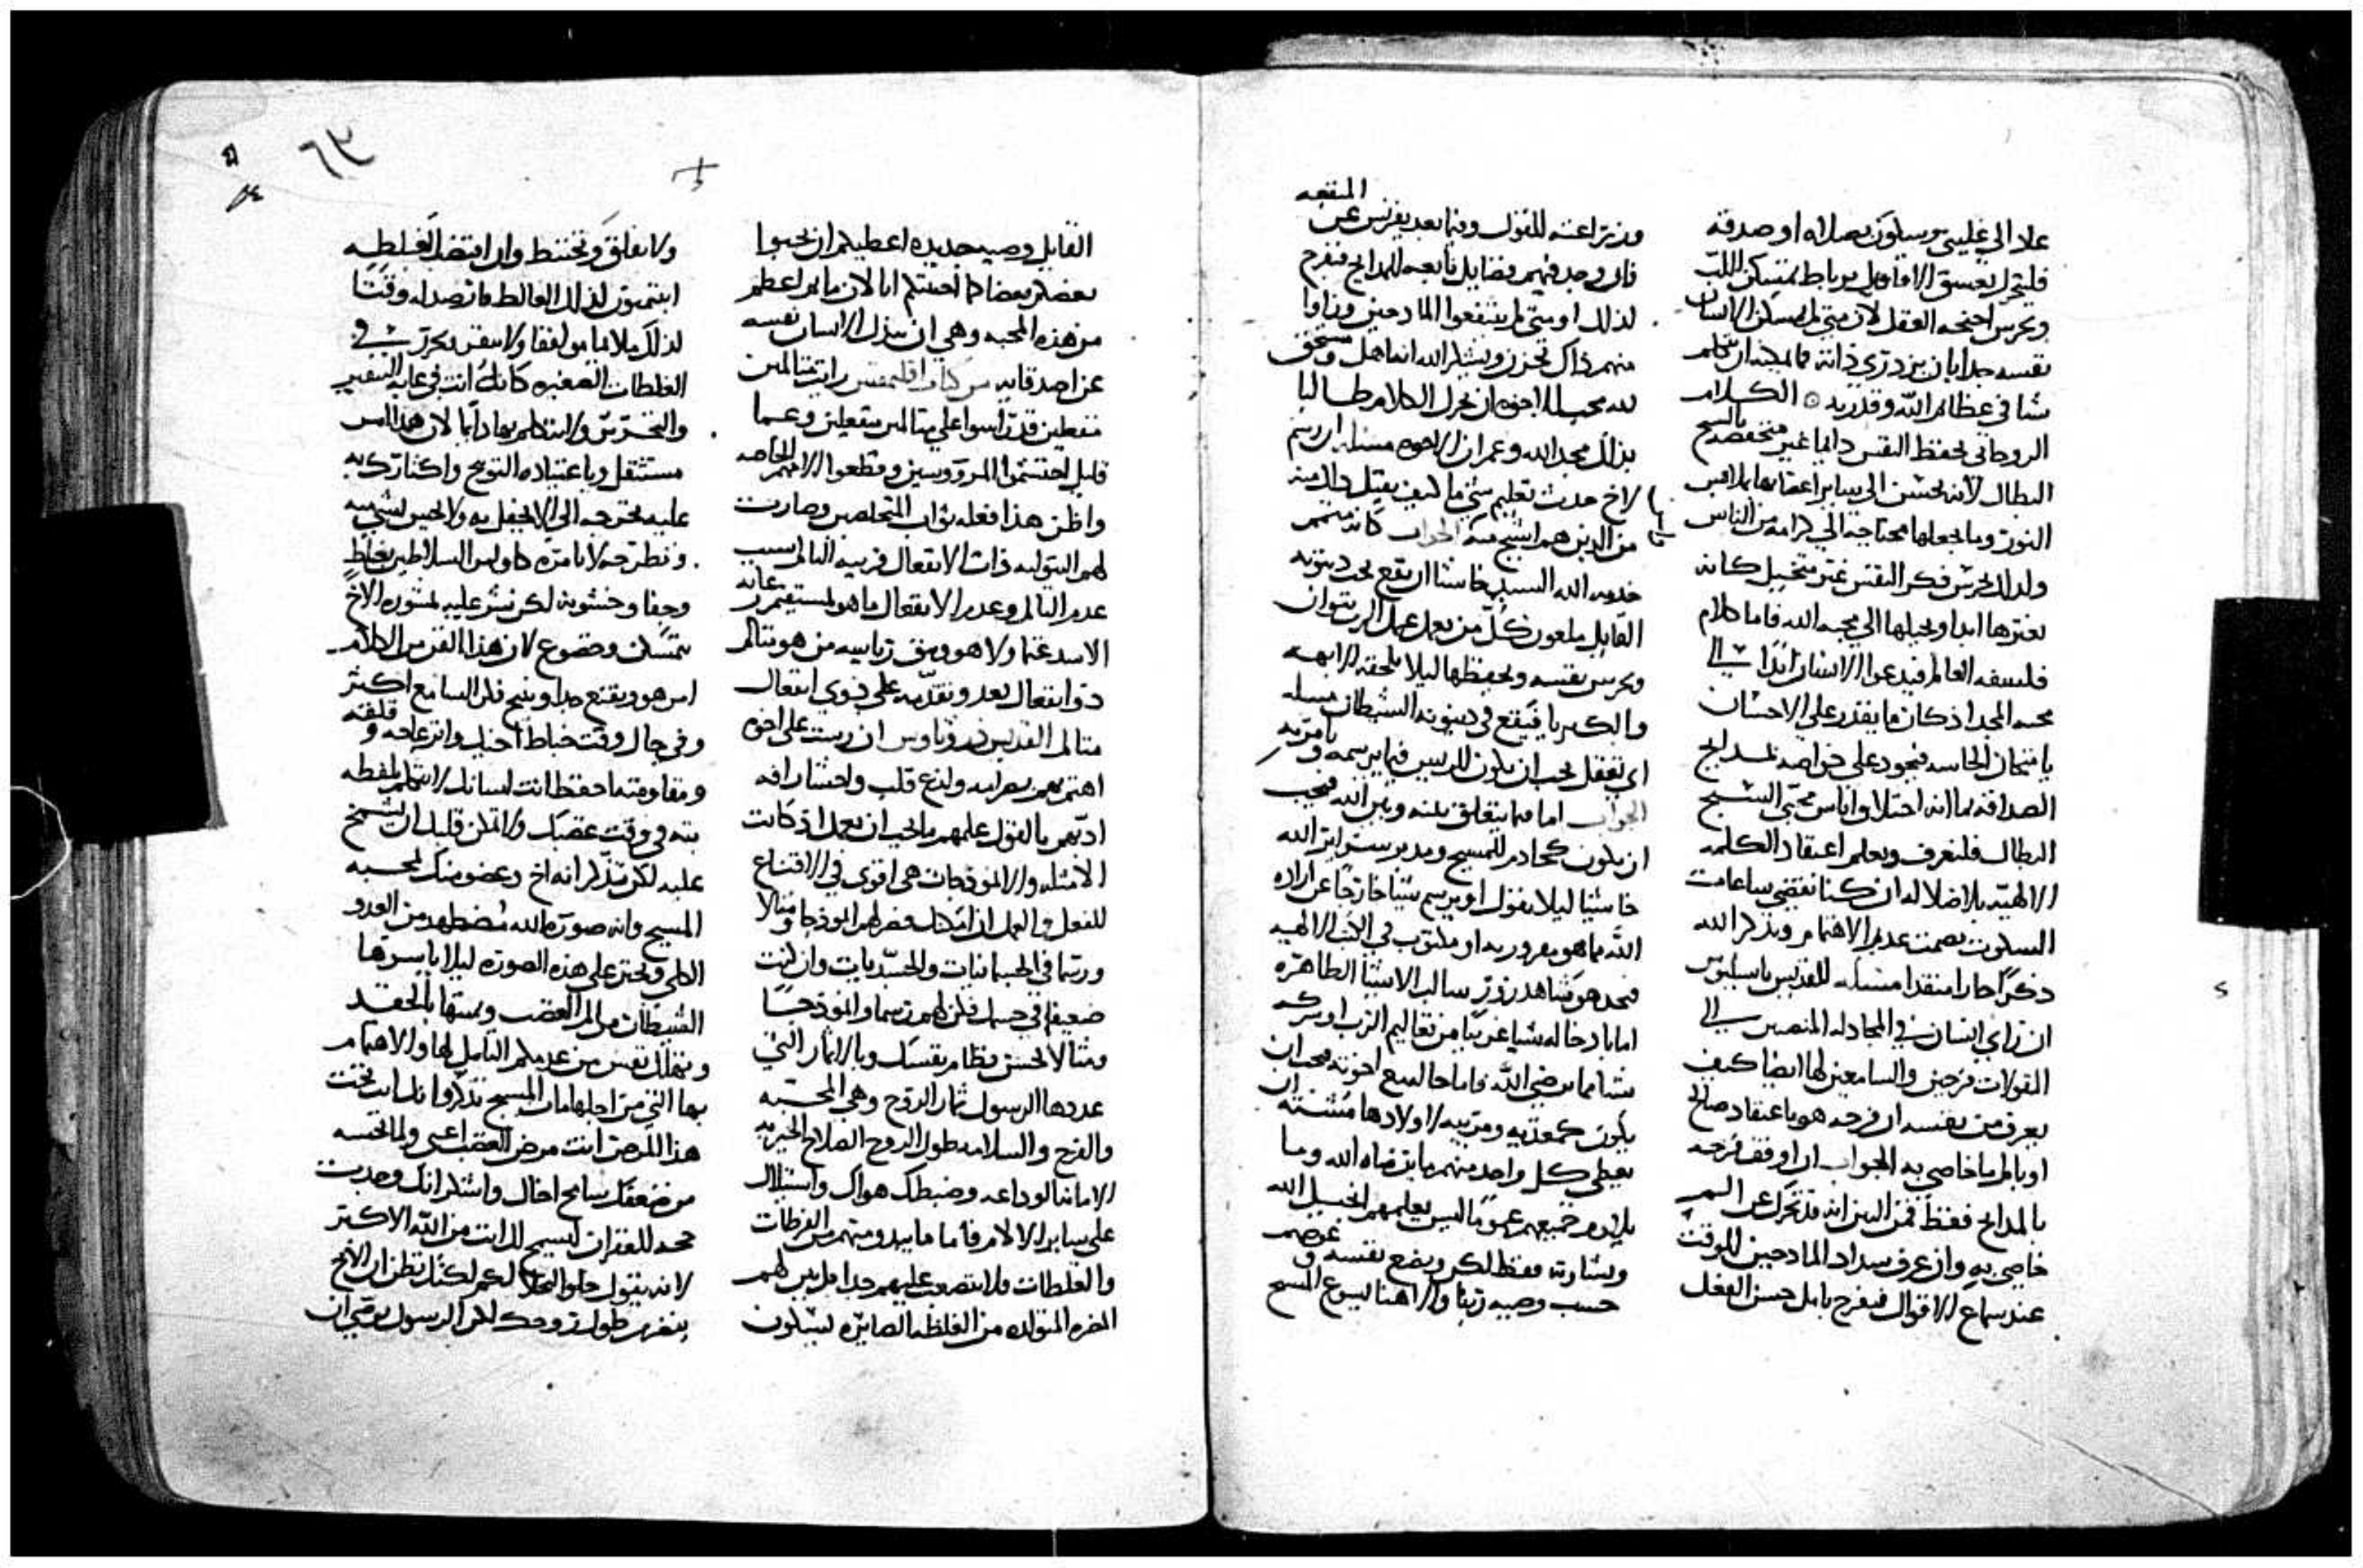 علا الي غليبي وسلون بصلاه او صدقه
فليتحرك بعسق الاقاويل برباط تمسكن اللب
ويحرس اجنحه العقل لان متي لم يسكن الانسان
نفسه جدا بان يزدري ذاته فما يمكنه ان يتكلم
شا في عظايم الله وقدرته الكلام
الروحاني يحفظ النفس دايما غير متخفضه بالسبح
البطال لانه يحسن الي ساير اعضايها بملامس
النور وما يجعلها محتاجه الي كرامه من الناس
ولذلك يحرس فكر النفس غير متخيل كانه
يغيرها ابدا ويحيلها الي محبه الله فاما كلام
فلسفه العالم فيدعوا الانسان ابدا الي
محبه المجد اذ كان ما يقدر علي الاحسان
بامتحان الحاسه فيجود علي خواصه بمدايح
الصداقه بما انه اختلاق اناس محبي السبح
البطال فلنعرف ونعلم اعتقاد الكلمه
الالهيه بلا ضلاله ان كنا نقضي ساعات
السكوت بصمت عديم الاهتمام وبذكر الله
ذكرا حارا متقدا مسله للقديس باسيليوس
ان راي انسان في المجادله المنصبين الي
المقولات فرحين والسامعين لها ايضا كيف
يعرف من نفسه ان فرحه هو باعتقاد صالح
او بالم ما خاصي به الجواب ان اوقف فرحه
بالمدايح فقط فمن البين انه قد تحرك عن الم
خاصي به وان عرف سداد المادحين للوقت
عند سماع الاقوال فيفرح بامل حسن الفعل
المنفعه
وزيتراعته للقول وفيما بعد يفرس عن
فان وجد فيهم فضايل تابعه للمدايح فيفرح
لذلك او متي لم ينتفعوا المادحين وزاوا
منهم ذاك تحزن ويشكر الله انه اهل وستحق
لله محبه للاخوه ان يحرك الكلام طالبا
بذلك مجد الله وعمران الاخوه مسله ان رسم
لاخ حدث تعليم شي ما كيف يقبل ذلك منه
من الذين هم اشيخ منه الجواب كانه متمم
خدمه الله السيد خاشا ان يقع تحت دينونه
القايل ملعون كل من يعمل عمل الرب بتوان
ويحرس نفسه ويحفظها ليلا تلحقه الابهه
والكبريا فيقع في دينونه الشيطان مسله
اي تعقل يجب ان يكون للريس فيما يرسمه ويامر به
الجواب اما فيما يتعلق بينه وبين الله فيجب
ان يكون كخادم للمسيح ومدبر سراير الله
خاشيا ليلا يقول او يرسم شيا خارجا عن اراده
الله مما هو مقرور به او مكتوب في الكتب الالهيه
فيجد هو شاهد زور سالب الاشيا الطاهره
اما بادخاله شيا غريبا من تعاليم الرب او بتركه
شيا مما يرضي الله فاما حاله مع اخوته فيجب ان
يكون كمغذيه ومربيه لاولادها مشتهيه ان
يعطي كل واحد منهم ما يرضاه الله وما
يلايم جميعهم عموما ليس يعلمهم انجيل الله
وبشارته فقط لكن ويضع نفسه عوضهم
حسب وصيه ربنا والاهنا يسوع المسيح
٦٣
القايل وصيه جديده اعطيكم ان تحبوا
بعضكم بعضا كما احببتكم انا لان ما من اعظم
من هذه المحبه وهي ان يبذل الانسان نفسه
عن اصدقايه من كتاب اقليمقس رايت متالمين
منفعلين قد تراسوا علي متالمين منفعلين وعما
قليل احتشموا المرووسين وقطعوا الامهم الخاصه
واظن هذا فعله ثواب المتخلصين وصارت
لهم التوليه ذات الانفعال قريبه التالم لسبب
عدم التالم وعدم الانفعال ما هو لمستقيم غايه
الاستدعا ولا هو ويق رياسه من هو متالم
ذو انفعال بعد وتقدمه علي ذوي انفعال
متالم القديس دوروثاوس ان ريست علي اخوه
اهتم بهم بصرامه ولذع قلب واحشا رافه
ادبهم بالقول علمهم ما يجب ان يعمل اذ كانت
الامثله والانموذجات هي اقوي في الاقناع
للفعل والعمل ان امكنك فصر لهم انموذجا ومثالا
وربما في الجسمانيات والجسديات وان كنت
ضعيفا في جسمك فكن لهم رسما وانموذجا
ومثالا لحسن نظام نفسك وبالاثمار التي
عددها الرسول ثمار الروح وهي المحبه
والفرح والسلامه طول الروح الصلاح الخيريه
الامانه الوداعه وضبطك هواك واستيلاك
علي ساير الالام فاما ما يبدو منهم من الفرطات
والغلطات فلا تتصعب عليهم جدا بل بين لهم
المضره المتولده من الغلطه الصايره بسكون
ولا تقلق وتختبط وان اقتضت الغلطه
انتهر لذلك الغالط فارصد له وقتا
لذلك ملايما موافقا ولا تنقر بحرق في
الغلطات الصغيره كانك انت في غايه التنقير
والتحري ولا تتكلم بها دايما لان هذا امر
مستثقل وباعتياده التوبيخ واكثارك به
عليه تخرجه الي الا يحفل به ولا يحس لشي منه
ولا تطرحه لا بامره كاوامر السلاطين بغلظ
وجفا وخشونه لكن تشر عليه لمشوره الاخ
بتمسكن وخضوع لان هذا الفن من الكلام
امر هو ويقنع جدا وينيح قلب السامع اكثر
وفي حال وقت خباط اخيك وانزعاجه وقلقه
ومقاومته احفظ انت لسانك لا تتكلم بلفظه
بته في وقت غضبك ولا تمكن قلبك ان يشمخ
عليه لكن تذكر انه اخ وعضو منك بمحبه
المسيح وانه صوره الله مضطهد من العدو
الكلي وتحنن علي هذه الصوره ليلا ياسرها
الشيطان من الم الغضب ويميتها بالحقد
وتهلك نفس من عدم التامل لها والاهتمام
بها التي من اجلها مات المسيح تذكر وانك انت تحت
هذا المرض انت مرض الغضب اعني ولما تحسه
من ضعفك سامح اخاك واشكر انك وجدت
حجه للغفران لتسمح لك انت من الله الاكثر
لانه يقول حلوا تحلا لكم لعلك تظن ان الاخ
ينضر من طول روحك لكن الرسول يوصي ان